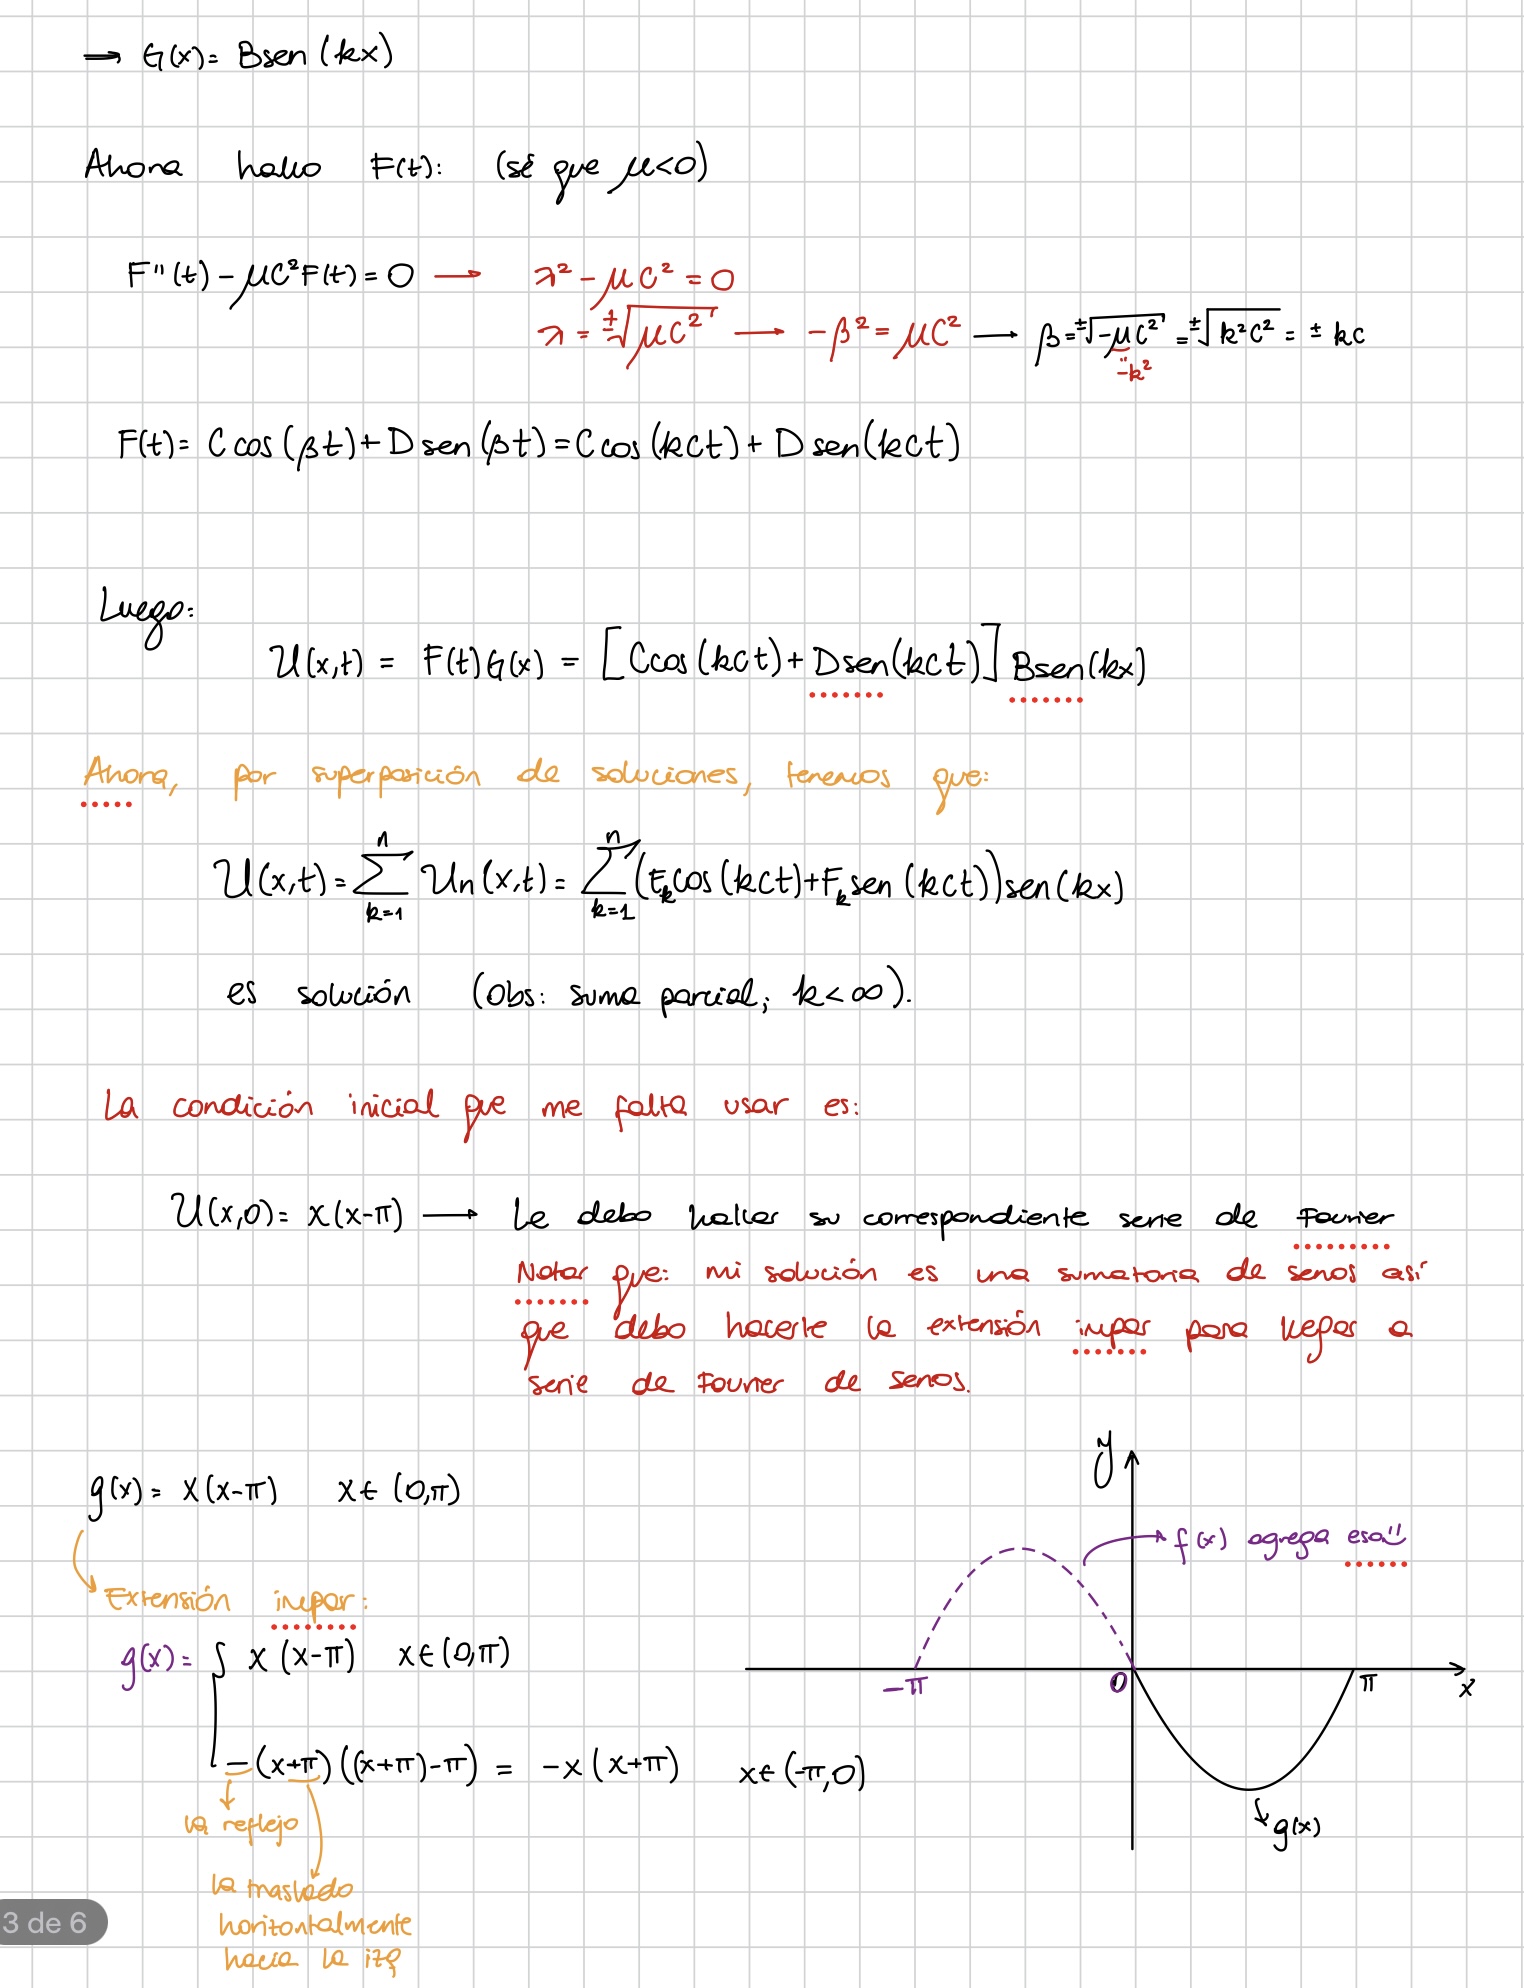 → G(x)= Bsen(kx)
Ahora hallo F(t): (sé que μ<0)
F''(t) - μC²F(t) = 0 → λ² - μC² = 0
λ = ±√μC² → -β² = μC² → β = ±√-μC² = ±√k²c² = ± kc
-k²
F(t)= C cos(βt) + D sen(βt) = C cos(kct) + D sen(kct)
Luego:
U(x,t) = F(t)G(x) = [Ccos(kct) + Dsen(kct)] Bsen(kx)
Ahora, por superposición de soluciones, tenemos que:
U(x,t) = ∑ₖ₌₁ⁿ Un(x,t) = ∑ₖ₌₁ⁿ (Eₖcos(kct)+Fₖsen(kct))sen(kx)
es solución (Obs: suma parcial; k<∞).
La condición inicial que me falta usar es:
U(x,0)= x(x-π) → Le debo hallar su correspondiente serie de Fourier
Notar que: mi solución es una sumatoria de senos así
que debo hacerle la extensión impar para llegar a
serie de Fourier de senos.
g(x)= x(x-π) x∈(0,π)
Extensión impar:
g(x)= { x(x-π) x∈(0,π)
-(x+π)((x+π)-π) = -x(x+π) x∈(-π,0)
la reflejo
la traslado
horizontalmente
hacia la izq
y
f(x) agrega eso!!
-π 0 π x
g(x)
3 de 6